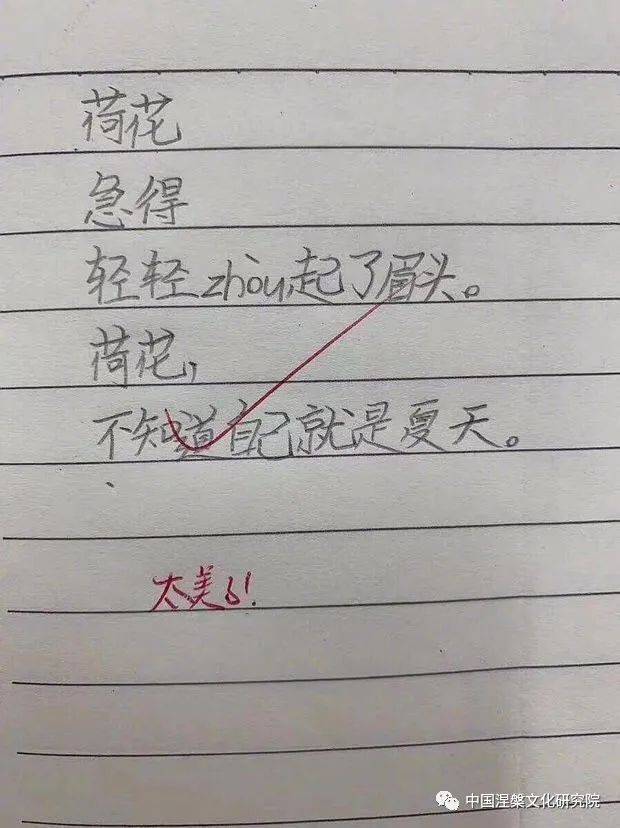 荷花
急得
轻轻zhòu起了眉头。
荷花,
不知道自己就是夏天。
太美了!
中国涅槃文化研究院